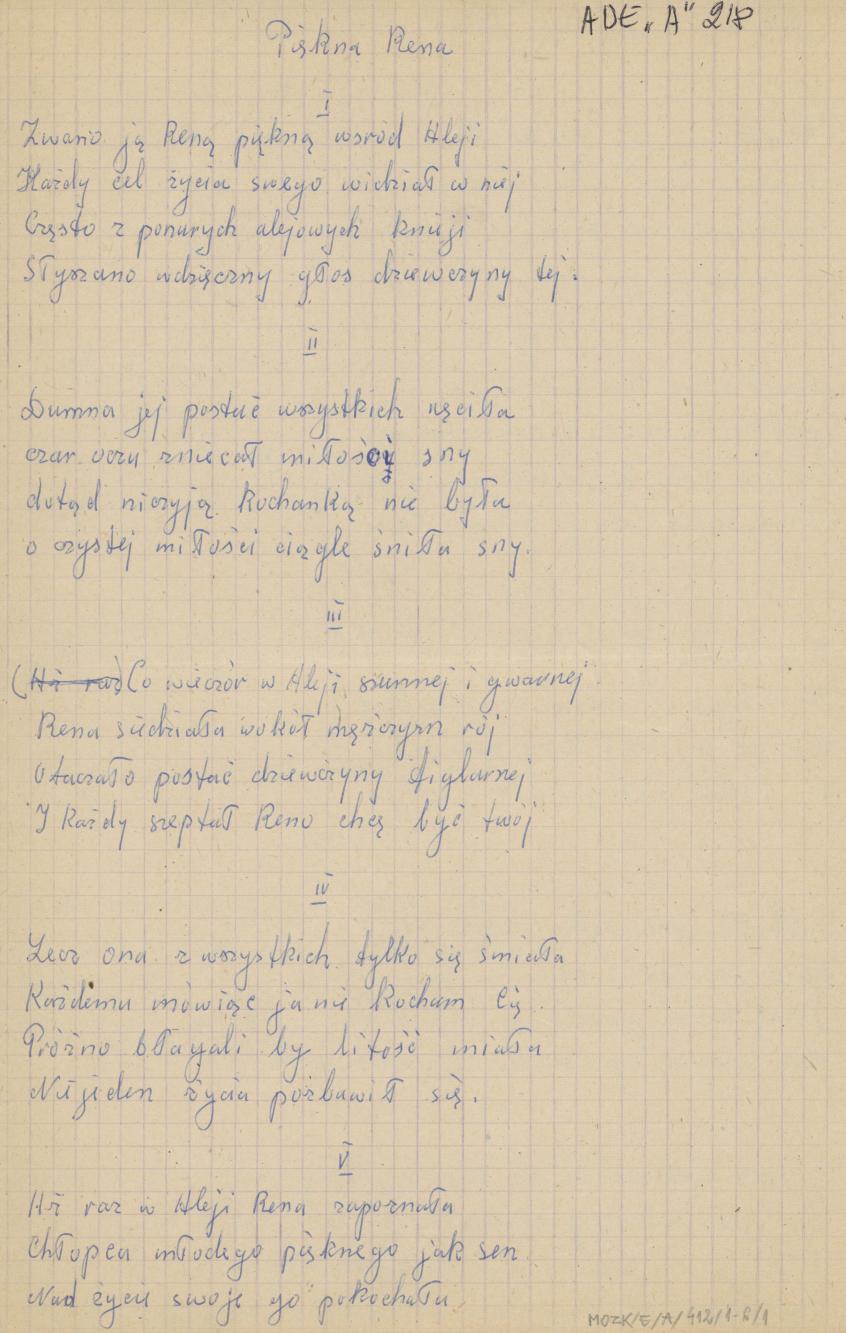 ADE „A" 218
Piękna Rena
I
Zwano ją Reną piękną wsród Aleji
Każdy cel życia swego widział w niej
Często z ponurych alejowych knieji
Słyszano wdzięczny głos dziewczyny tej.
II
Dumna jej postać wszystkich nęciła
czar oczu zniecał miłości sny
dotąd niczyją kochanką nie była
o czystej miłości ciągle śniła sny.
III
(Aż raz) Co wieczór w Aleji szumnej i gwarnej
Rena siedziała wokół męzczyzn rój
Otaczało postać dziewczyny figlarnej
I każdy szeptał Reno chcę być twój
IV
Lecz ona z wszystkich tylko się śmiała
Każdemu mówiąc ja nie kocham Cię.
Próżno błagali by litość miała
Nie jeden życia pozbawił się.
V
Aż raz w Aleji Rena zapoznała
Chłopca młodego pięknego jak sen
Nad życie swoje go pokochała
MOZK/E/A/412/1-8/1